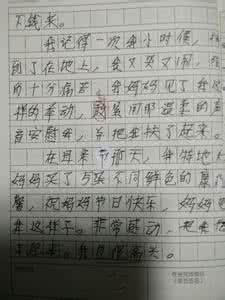 下线来。
我记得一次我小时候,
到了在地上,我又哭又闹,
而十分痛苦。我妈妈见了我这
样的举动,就用那温柔的声
音安慰我,并把我扶了起来。
在母亲节那天,我特地
妈妈买了5朵不同颜色的康乃
馨,祝妈妈节日快乐,妈妈
我这样子。非常感动,
我也很高兴。